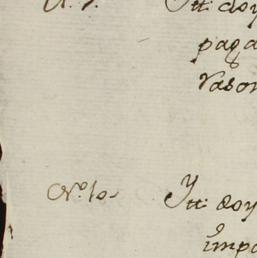 Itt. doy
paga
rason
No. 10. Itt. doy
impo